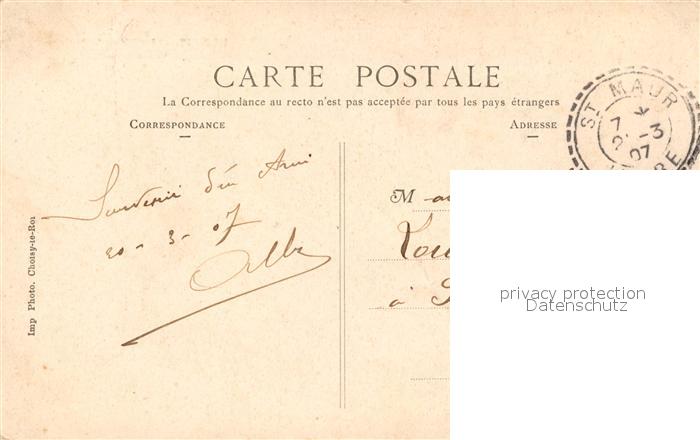 CARTE POSTALE
La Correspondance au recto n'est pas acceptée par tous les pays étrangers
CORRESPONDANCE
ADRESSE
ST MAUR
7
-3
07
RE
Souvenir d'un Ami
20 - 3 - 07
M
Lou
à
privacy protection
Datenschutz
Imp Photo. Choisy-le-Roi